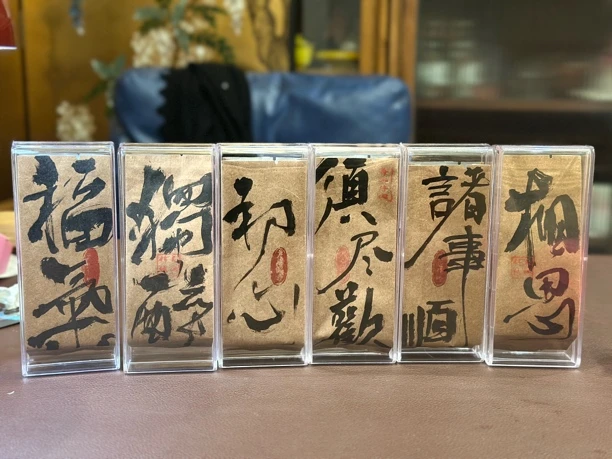 福
獨醉
初心
須尽歡
諸事順
相思